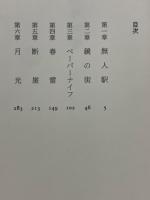 目次
第一章 無人駅 5
第二章 鏡の街 46
第三章 ペーパーナイフ 102
第四章 春雷 149
第五章 断崖 213
第六章 月光 283